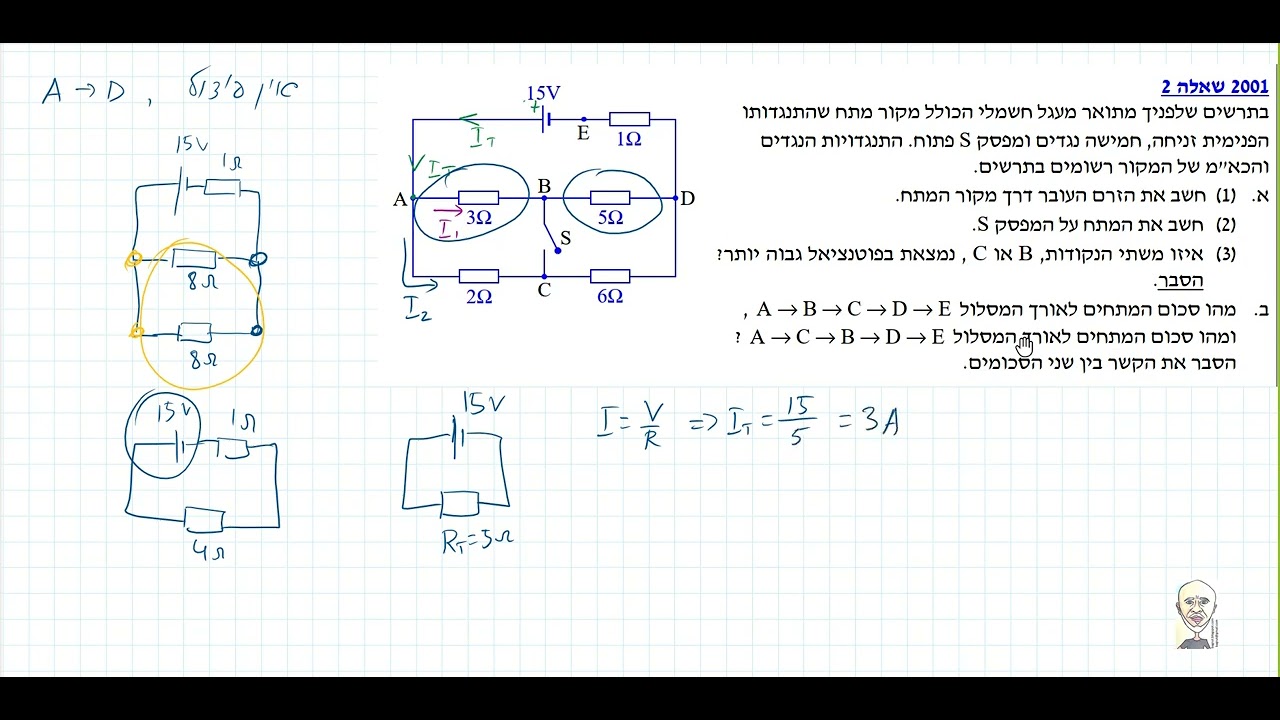 2001 שאלה 2
בתרשים שלפניך מתואר מעגל חשמלי הכולל מקור מתח שהתנגדותו
הפנימית זניחה, חמישה נגדים ומפסק S פתוח. התנגדויות הנגדים
והכא״מ של המקור רשומים בתרשים.
א. (1) חשב את הזרם העובר דרך מקור המתח.
(2) חשב את המתח על המפסק S.
(3) איזו משתי הנקודות, B או C , נמצאת בפוטנציאל גבוה יותר?
הסבר.
ב. מהו סכום המתחים לאורך המסלול A → B → C → D → E ,
ומהו סכום המתחים לאורך המסלול A → C → B → D → E ?
הסבר את הקשר בין שני הסכומים.
15V
+
E
1Ω
I_T
V I_T
A
B
D
3Ω
5Ω
I_1
S
2Ω
C
6Ω
I_2
A → D , אין פיצול
15V
1Ω
8Ω
8Ω
15V
1Ω
4Ω
15V
R_T=5Ω
I = V/R => I_T = 15/5 = 3A